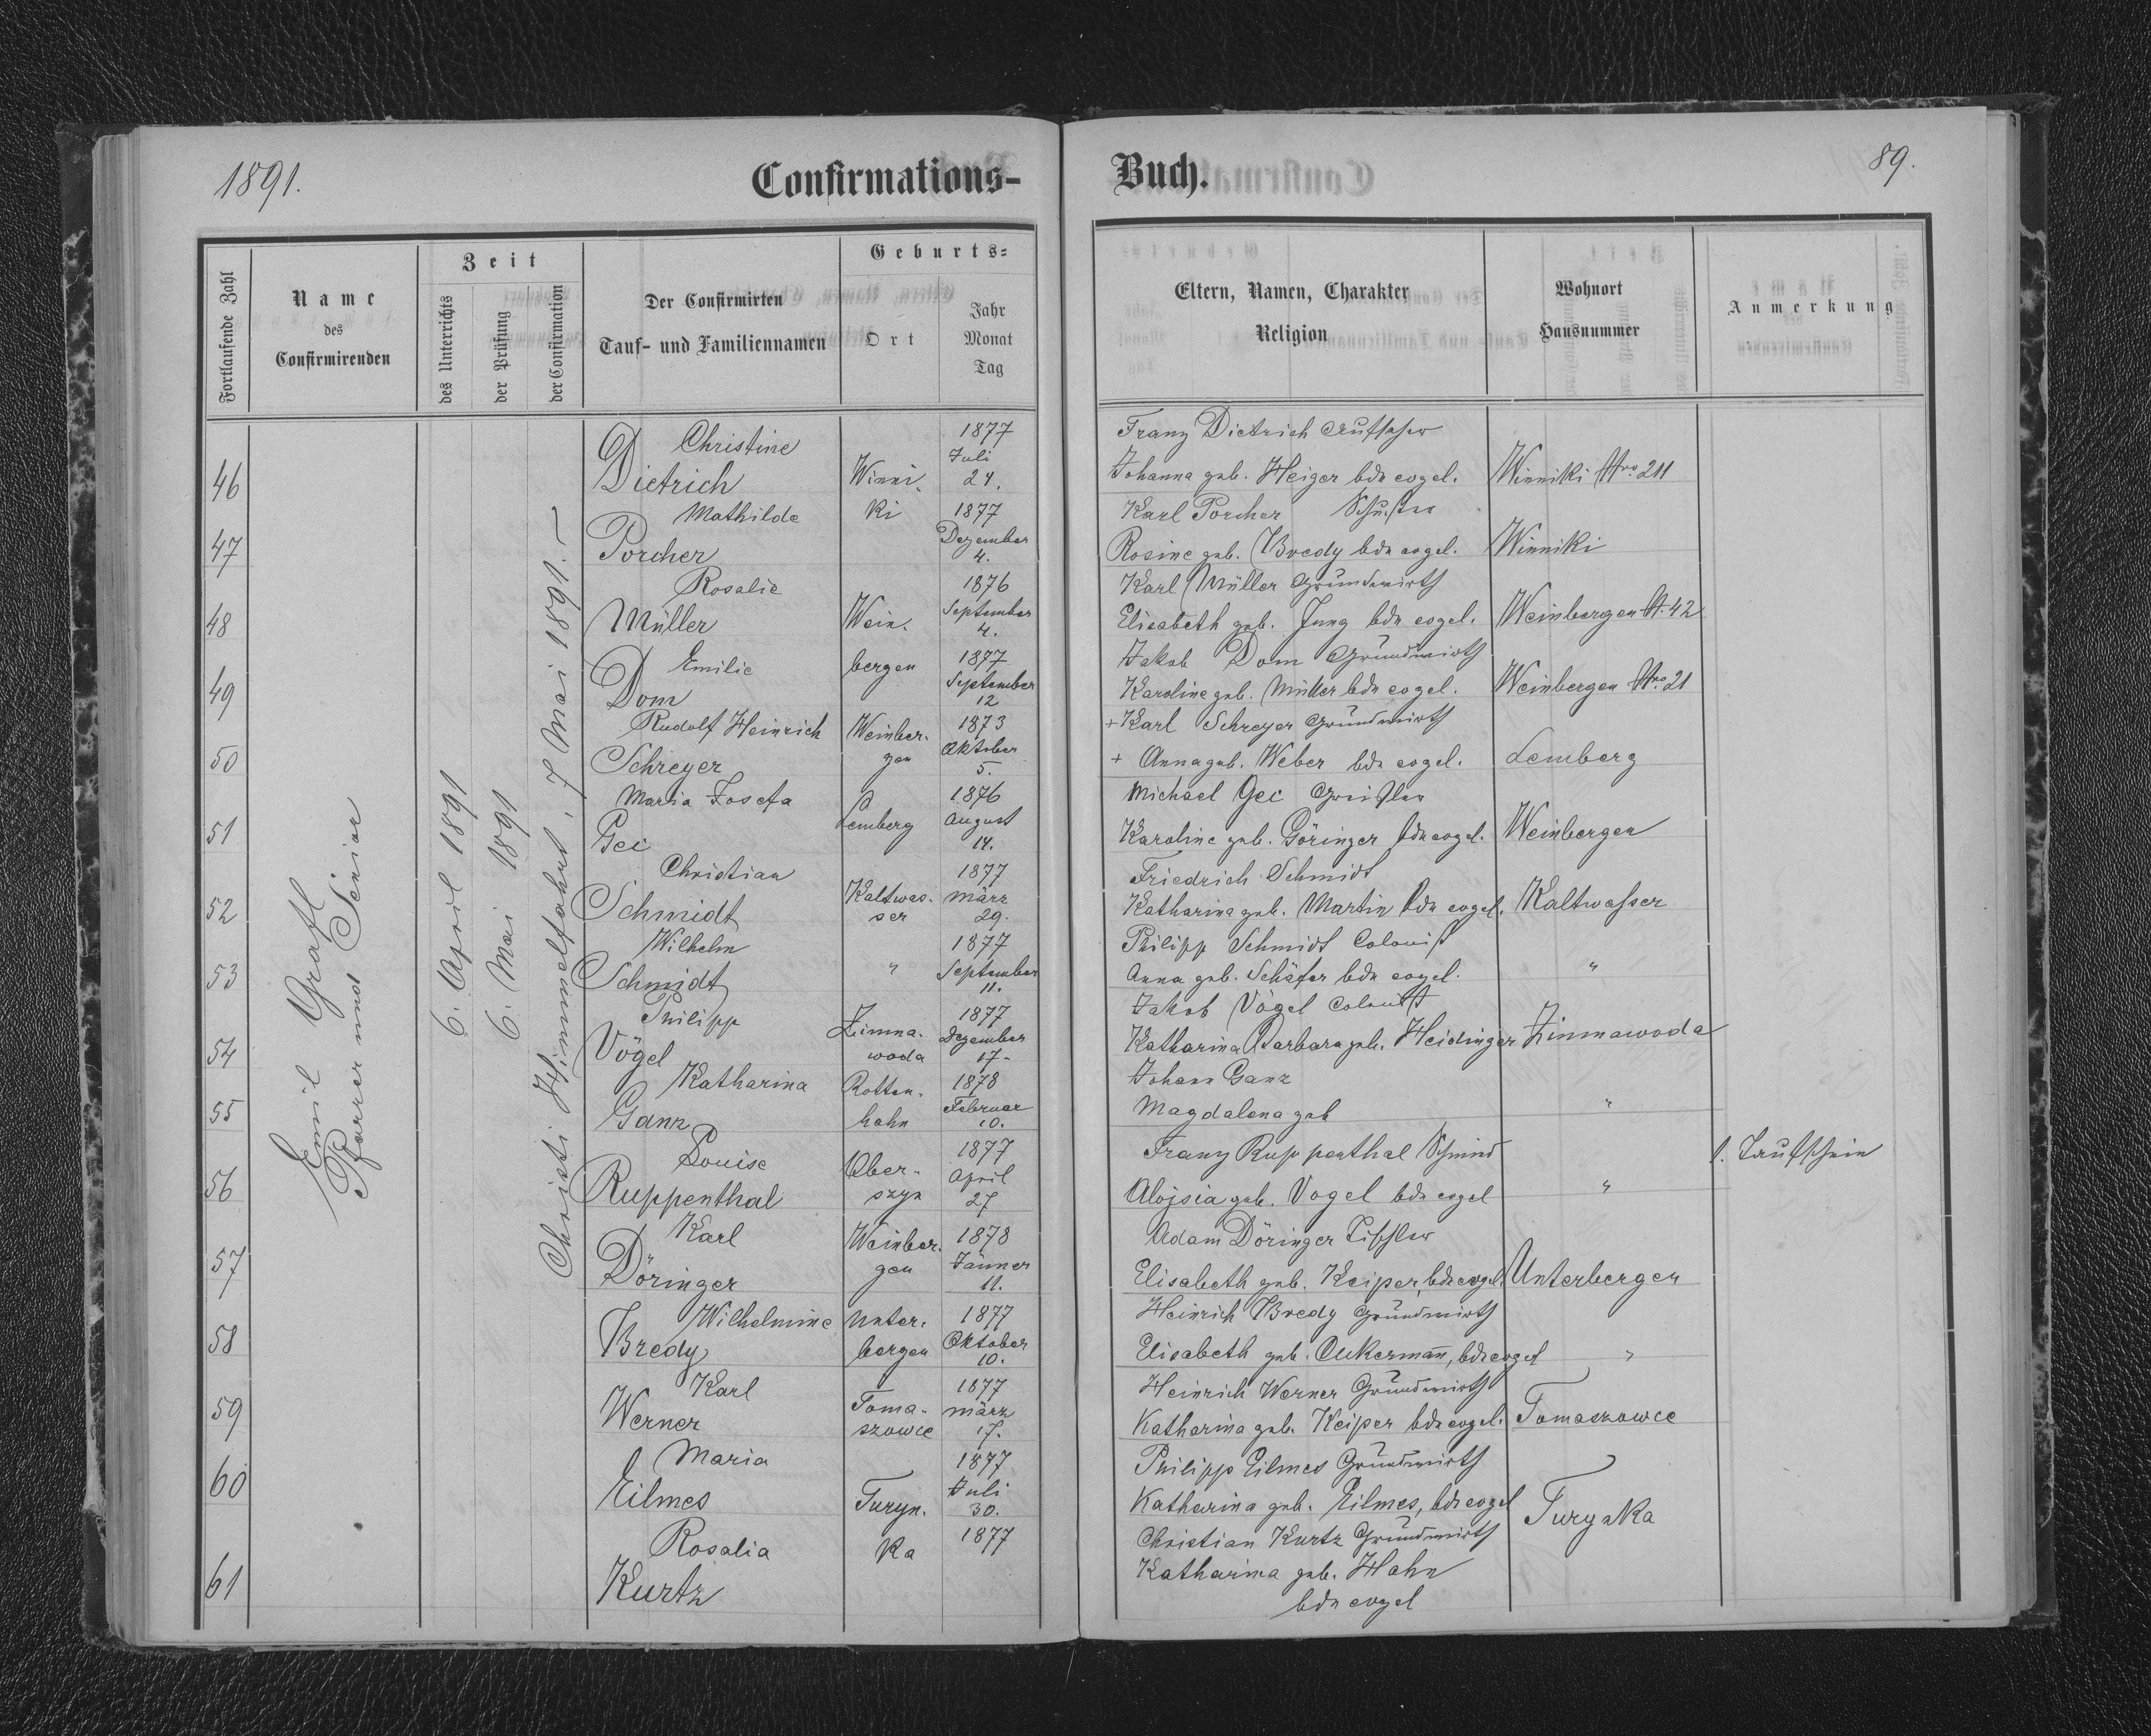 1891.
Confirmations-
Buch.
89.
Fortlaufende Zahl
Name
des
Confirmirenden
Zeit
des Unterrichts
der Prüfung
der Confirmation
Der Confirmirten
Tauf- und Familiennamen
Geburts-
Ort
Jahr
Monat
Tag
Eltern, Namen, Charakter
Religion
Wohnort
Hausnummer
Anmerkung
Emil Grafl
Pfarrer und Senior
6. April 1891
6. Mai 1891
Christi Himmelfahrt, 7 Mai 1891.
46
Christine
Dietrich
Winni-
1877
Juli
24.
Franz Dietrich Aufseher
Johanna geb. Heiger bde evgel.
Winniki Nro. 211
47
Mathilde
Porcher
ki
1877
Dezember
4.
Karl Porcher Schuster
Rosine geb. Bredy bde evgel.
Winniki
48
Rosalie
Müller
Wein-
1876
September
4.
Karl Müller Grundwirth
Elisabeth geb. Jung bde evgel.
Weinbergen N. 42
49
Emilie
Dom
bergen
1877
September
12
Jakob Dom Grundwirth
Karoline geb. Müller bde evgel.
Weinbergen Nro. 21
50
Rudolf Heinrich
Schreyer
Weinber-
gen
1873
Oktober
5.
+ Karl Schreyer Grundwirth
+ Anna geb. Weber bde evgel.
Lemberg
51
Maria Josefa
Gei
Lemberg
1876
August
14.
Michael Gei Greisler
Karoline geb. Göringer bde evgel.
Weinbergen
52
Christian
Schmidt
Kaltwas-
ser
1877
März
29.
Friedrich Schmidt
Katharina geb. Martin bde evgel.
Kaltwasser
53
Wilhelm
Schmidt
"
1877
September
11.
Philipp Schmidt Colonist
Anna geb. Schäfer bde evgel.
"
54
Philipp
Vögel
Zimna-
woda
1877
Dezember
17.
Jakob Vögel Colonist
Katharina Barbara geb. Heidinger
Zimnawoda
55
Katharina
Ganz
Rotten-
hahn
1878
Februar
10.
Johann Ganz
Magdalena geb
"
56
Louise
Ruppenthal
Ober-
szyn
1877
April
27
Franz Ruppenthal Schmid
Alojsia geb. Vogel bde evgel
"
Taufschein
57
Karl
Döringer
Weinber-
gen
1878
Jänner
11.
Adam Döringer Tischler
Elisabeth geb. Keiper, bde evgel.
Unterbergen
58
Wilhelmine
Bredy
Unter-
bergen
1877
Oktober
10.
Heinrich Bredy Grundwirth
Elisabeth geb. Ankermann, bde evgel
"
59
Karl
Werner
Toma-
szowce
1877
März
17.
Heinrich Werner Grundwirth
Katharina geb. Keiper bde evgel.
Tomaszowce
60
Maria
Eilmes
Turyn-
1877
Juli
30.
Philipp Eilmes Grundwirth
Katharina geb. Eilmes, bde evgel
Turynka
61
Rosalia
Kurtz
ka
1877
Christian Kurtz Grundwirth
Katharina geb. Hahn
bde evgel